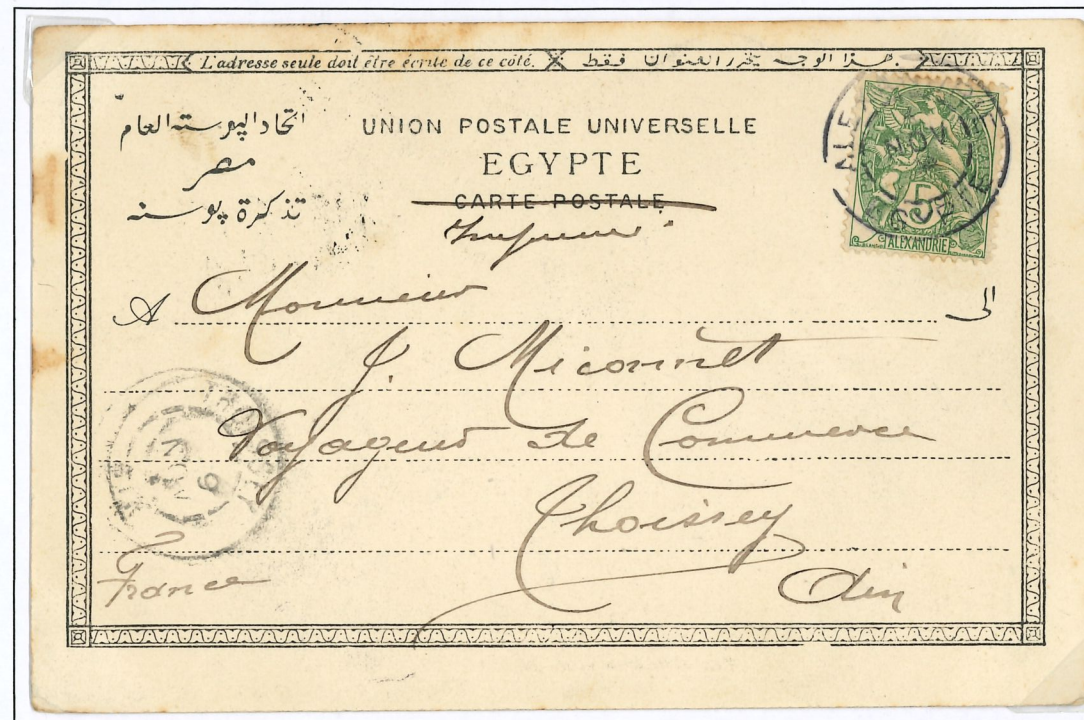 L'adresse seule doit être écrite de ce côté. بهذا الوجه يحرر العنوان فقط
اتحاد البوسته العام
مصر
تذكرة بوسته
UNION POSTALE UNIVERSELLE
EGYPTE
CARTE POSTALE
Imprimé
5
ALEXANDRIE
NOV
A Monsieur الى
J. Miconnet
Voyageur de Commerce
Thoissey
Ain
France
NOV